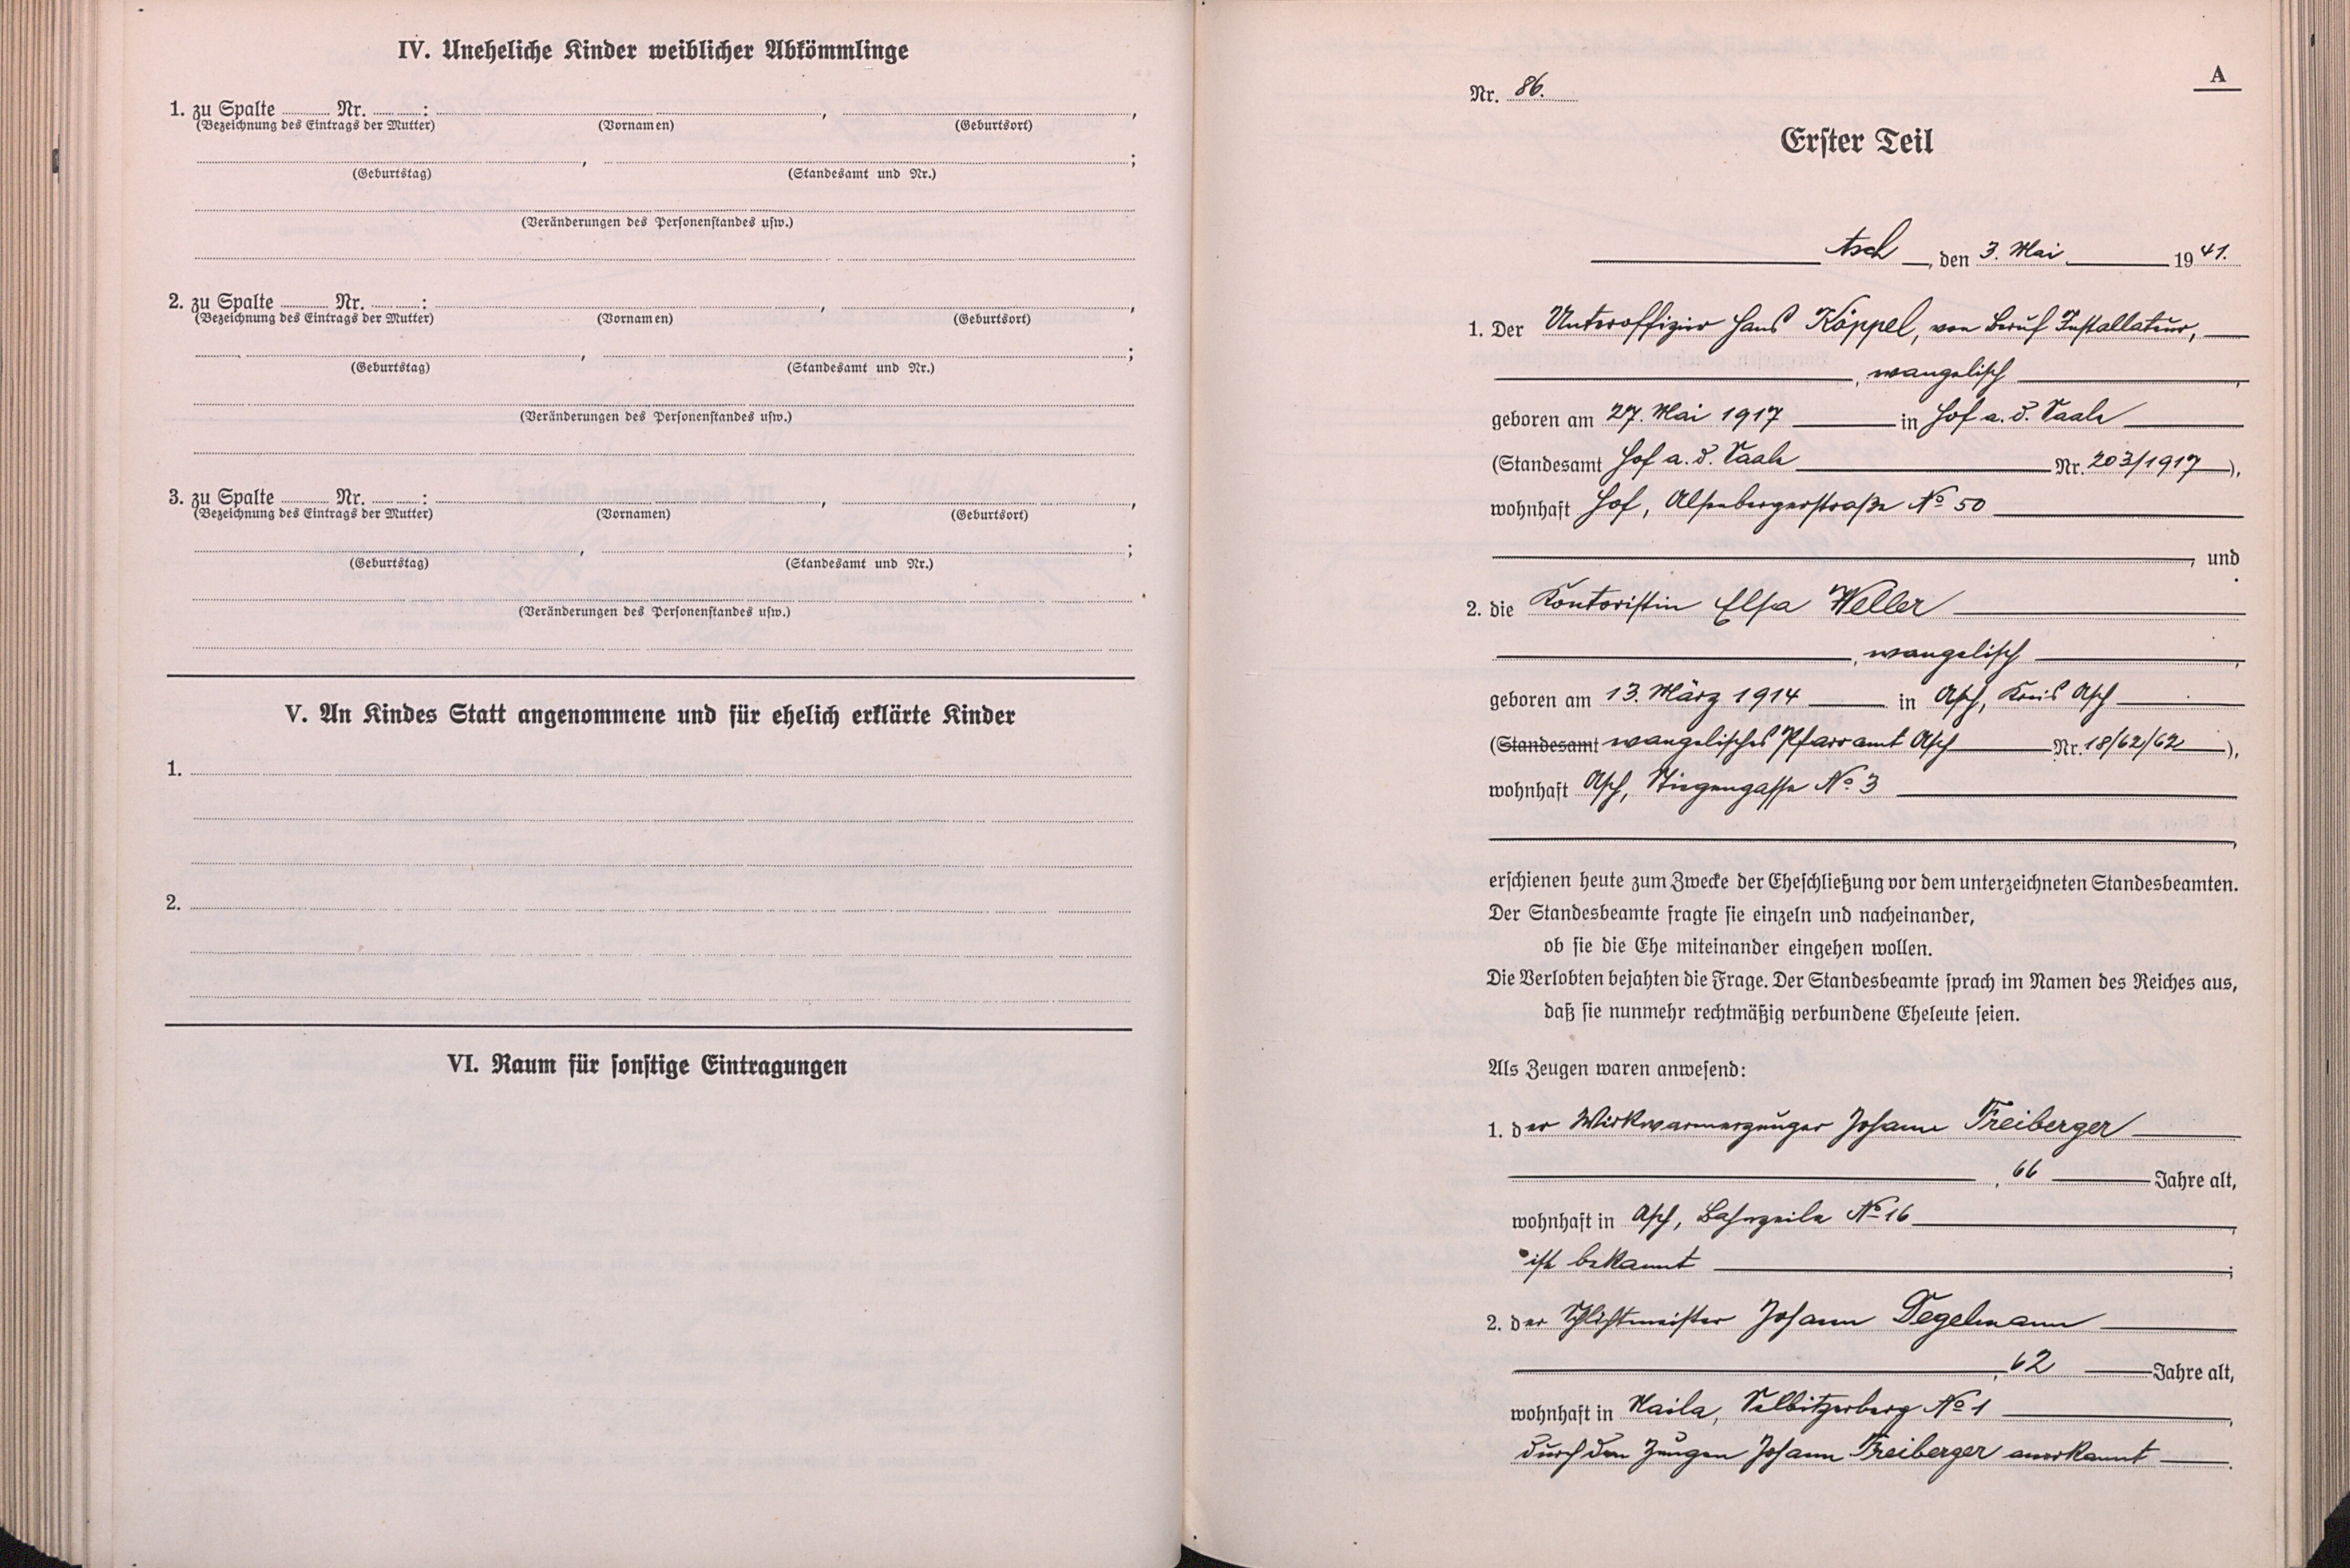 IV. Uneheliche Kinder weiblicher Abkömmlinge
1. zu Spalte ........ Nr. ........: ........, ........,
(Bezeichnung des Eintrags der Mutter) (Vornamen) (Geburtsort)
........, ........;
(Geburtstag) (Standesamt und Nr.)
(Veränderungen des Personenstandes usw.)
2. zu Spalte ........ Nr. ........: ........, ........,
(Bezeichnung des Eintrags der Mutter) (Vornamen) (Geburtsort)
........, ........;
(Geburtstag) (Standesamt und Nr.)
(Veränderungen des Personenstandes usw.)
3. zu Spalte ........ Nr. ........: ........, ........,
(Bezeichnung des Eintrags der Mutter) (Vornamen) (Geburtsort)
........, ........;
(Geburtstag) (Standesamt und Nr.)
(Veränderungen des Personenstandes usw.)
V. An Kindes Statt angenommene und für ehelich erklärte Kinder
1.
2.
VI. Raum für sonstige Eintragungen
A
Nr. 86.
Erster Teil
Asch, den 3. Mai 1941.
1. Der Unteroffizier Hans Köppel, von Beruf Installateur,
, evangelisch,
geboren am 27. Mai 1917 in Hof a. d. Saale
(Standesamt Hof a. d. Saale Nr. 203/1917),
wohnhaft Hof, Alsenbergerstraße № 50
, und
2. die Kontoristin Elsa Weller
, evangelisch,
geboren am 13. März 1914 in Asch, Kreis Asch
(Standesamt evangelisches Pfarramt Asch Nr. 18/62/62),
wohnhaft Asch, Stiegengasse № 3
,
erschienen heute zum Zwecke der Eheschließung vor dem unterzeichneten Standesbeamten.
Der Standesbeamte fragte sie einzeln und nacheinander,
ob sie die Ehe miteinander eingehen wollen.
Die Verlobten bejahten die Frage. Der Standesbeamte sprach im Namen des Reiches aus,
daß sie nunmehr rechtmäßig verbundene Eheleute seien.
Als Zeugen waren anwesend:
1. der Wirkwarenerzeuger Johann Freiberger
, 66 Jahre alt,
wohnhaft in Asch, Bahnzeile № 16,
ist bekannt;
2. der Schlichtmeister Johann Degelmann
, 62 Jahre alt,
wohnhaft in Naila, Selbitzerberg № 1,
durch den Zeugen Johann Freiberger anerkannt.